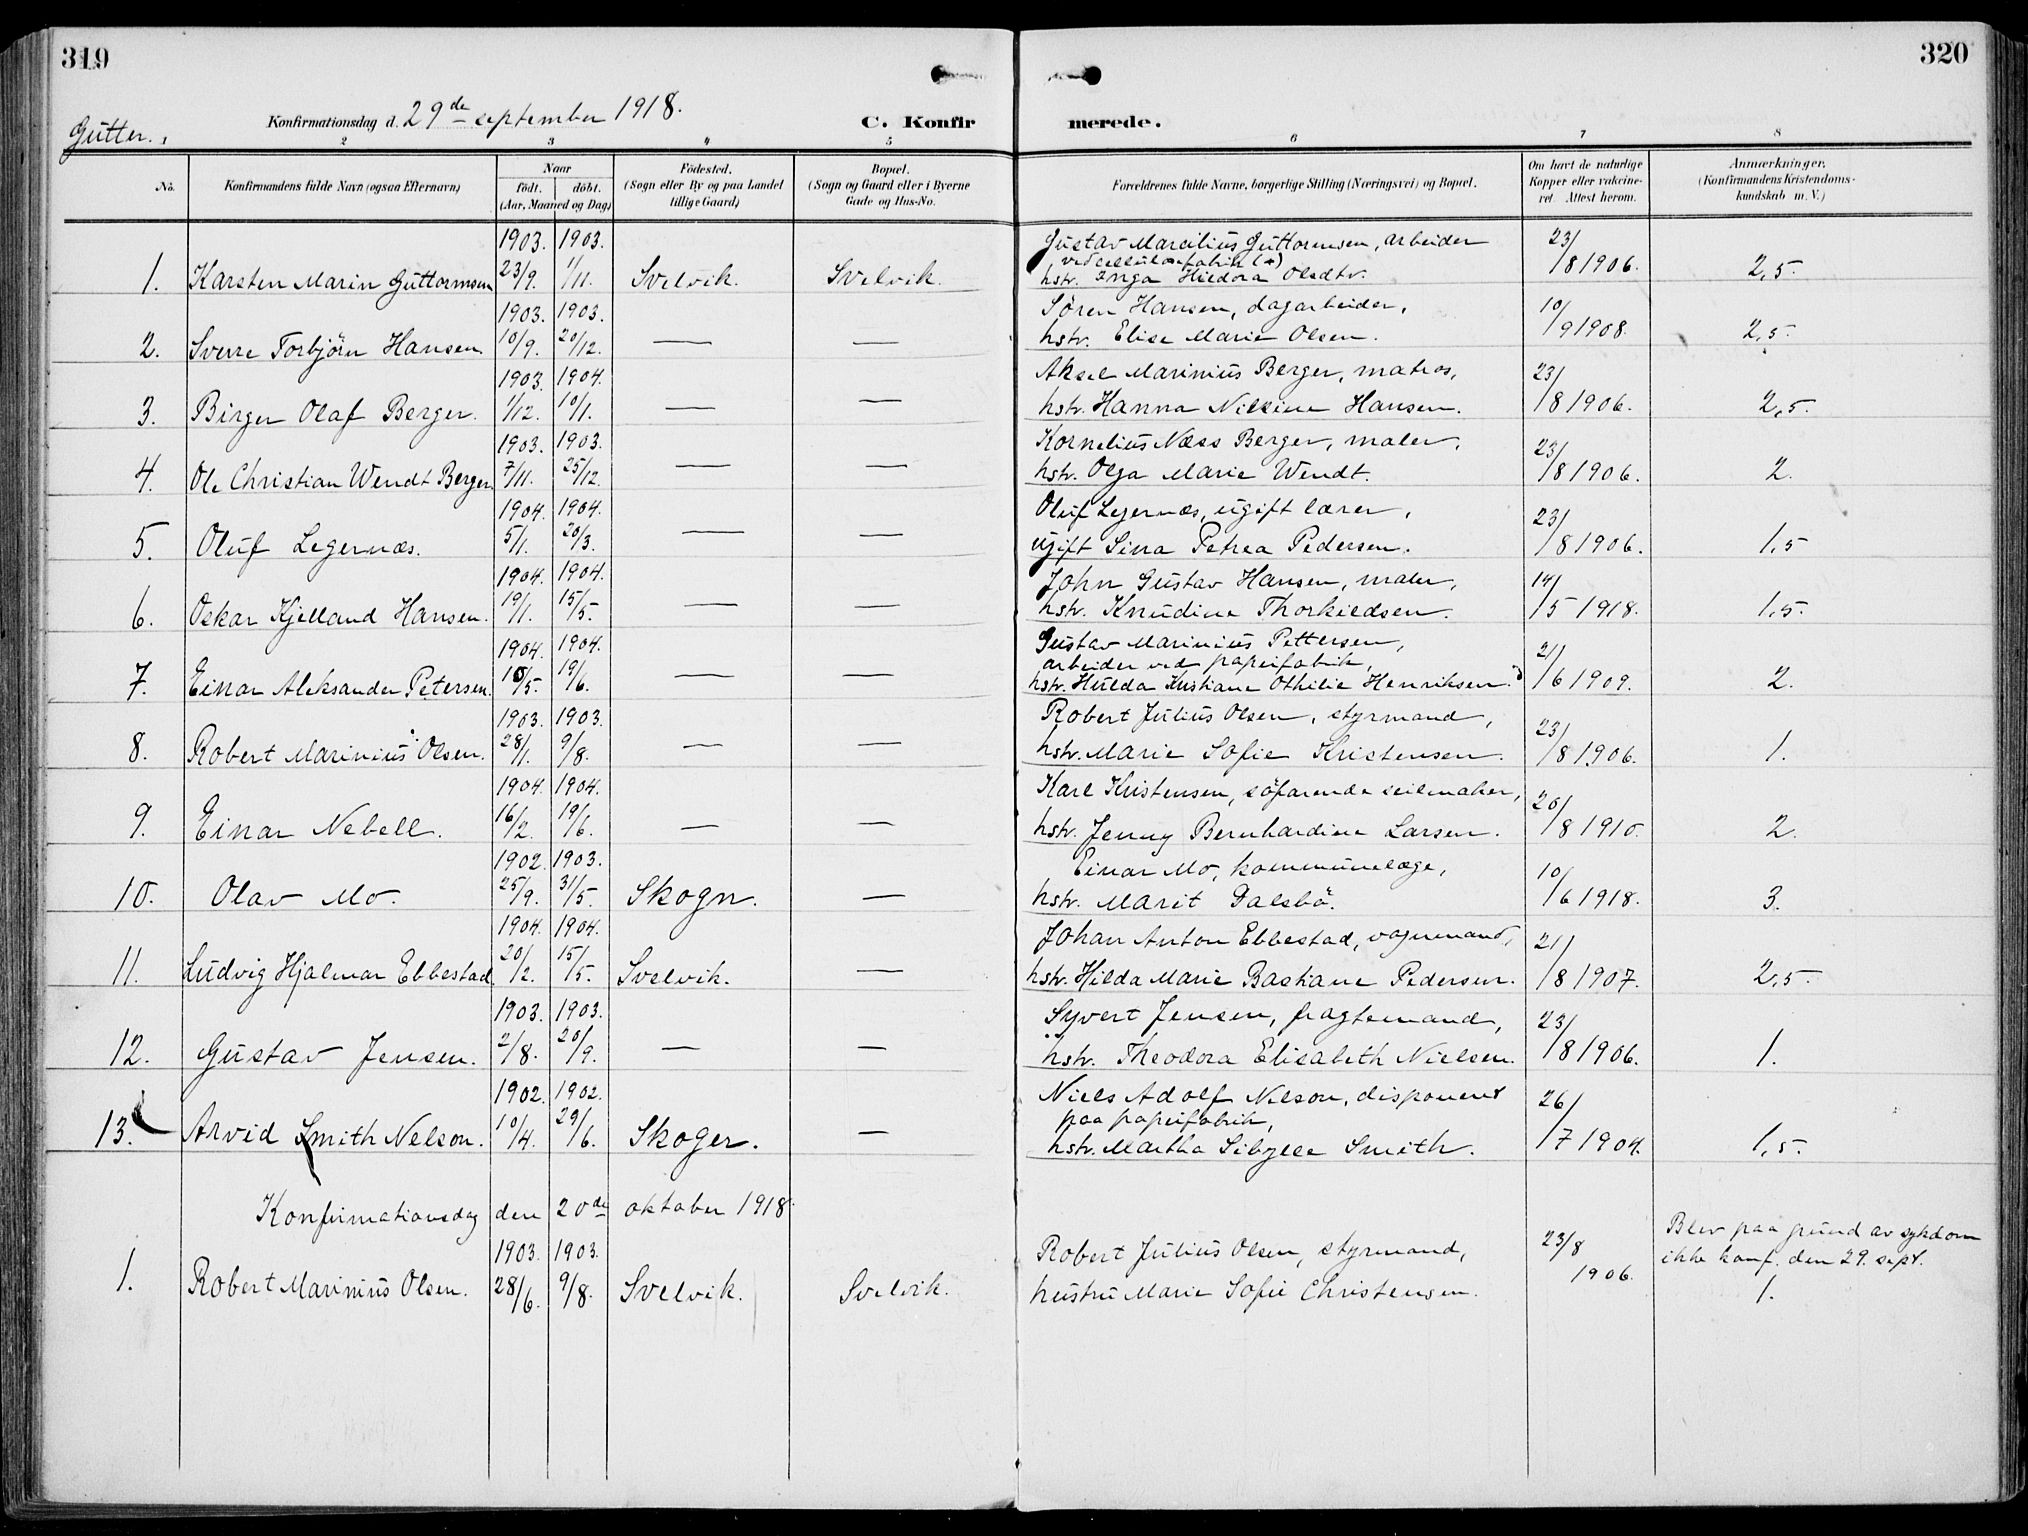 319
320
Gutter.
Konfirmationsdag d. 29de september 1918.
C. Konfir
merede.
1 2 3 4 5 6 7 8
No.
Konfirmandens fulde Navn (ogsaa Efternavn)
Naar
födt. döbt.
(Aar, Maaned og Dag)
Födested.
(Sogn eller By og paa Landet
tillige Gaard)
Bopæl.
(Sogn og Gaard eller i Byerne
Gade og Hus-No.
Forældrenes fulde Navne, borgerlige Stilling (Næringsvei) og Bopæl.
Om havt de naturlige
Kopper eller vakcine-
ret. Attest herom.
Anmærkninger.
(Konfirmandens Kristendoms-
kundskab m. V.)
1903. 1903. Gustav Marcilius Guttormsen, arbeider 23/
ved cellulosefabrik (*)
1. Karsten Marin Guttormsen 23/9. 1/11. Svelvik. Svelvik. hstr. Inga Hildora Olsdtr. /8 1906. 2,5.
1903. 1903. Søren Hansen, dagarbeider, 10/
2. Sverre Torbjörn Hansen. 10/9. 20/12. — — hstr. Elise Marie Olsen. /9 1908. 2,5.
1903. 1904. Aksel Marinius Berger, matros, 23/
3. Birger Olaf Berger. 1/12. 10/1. — — hstr. Hanna Nilsine Hansen. /8 1906. 2,5.
1903. 1903. Kornelius Næss Berger, maler, 23/
4. Ole Christian Wendt Berger. 7/11. 25/12. — — hstr. Olga Marie Wendt. /8 1906. 2.
1904. 1904. Oluf Legernæs, ugift lærer, 23/
5. Oluf Legernæs. 5/1. 20/3. — — ugift Sina Petrea Pedersen. /8 1906. 1,5
1904. 1904. John Gustav Hansen, maler, 14/
6. Oskar Kjelland Hansen. 19/1. 15/5. — — hstr. Knudine Thorkildsen. /5 1918. 1,5.
1904. 1904. Gustav Marinius Pettersen, 21/
arbeider ved papirfabrik,
7. Einar Aleksander Petersen. /5. 19/6. — — hstr. Hulda Kristiane Othilie Henriksen. /6 1909. 2.
1903. 1903. Robert Julius Olsen, styrmand, 23/
8. Robert Marinius Olsen. 28/1. 9/8. — — hstr. Marie Sofie Kristensen. /8 1906. 1.
1904. 1904. Karl Kristensen, söfarende seilmaker, 20/
9. Einar Nebell. 16/2. 19/6. — — hstr. Jenny Bernhardine Larsen. /8 1910. 2.
1902. 1903. Einar Mo, kommunelæge, 10/
10. Olav Mo. 25/9. 31/5. Skogn. — hstr. Marit Dalsbö. /6 1918. 3.
1904. 1904. Johan Anton Ebbestad, vognmand, 21/
11. Ludvig Hjalmar Ebbestad. 20/2. 15/5. Svelvik. — hstr. Hilda Marie Bastiane Pedersen. /8 1907. 2,5.
1903. 1903. Syvert Jensen, fragtemand, 23/
12. Gustav Jensen. 2/8. 20/9. — — hstr. Theodora Elisabeth Nielsen. /8 1906. 1.
1902. 1902. Niels Adolf Nelson, disponent 26/
paa papirfabrik,
13. Arvid Smith Nelson. 10/4. 29/6. Skoger. — hstr. Martha Sibylle Smith. /7 1904. 1,5.
Konfirmationsdag den 20de oktober 1918.
1903. 1903. Robert Julius Olsen, styrmand, 23/8 Blev paa grund av sykdom
ikke konf. den 29. sept.
1. Robert Marinius Olsen. 28/6. 9/8. Svelvik. Svelvik. hustru Marie Sofie Christensen. 1906. 1.